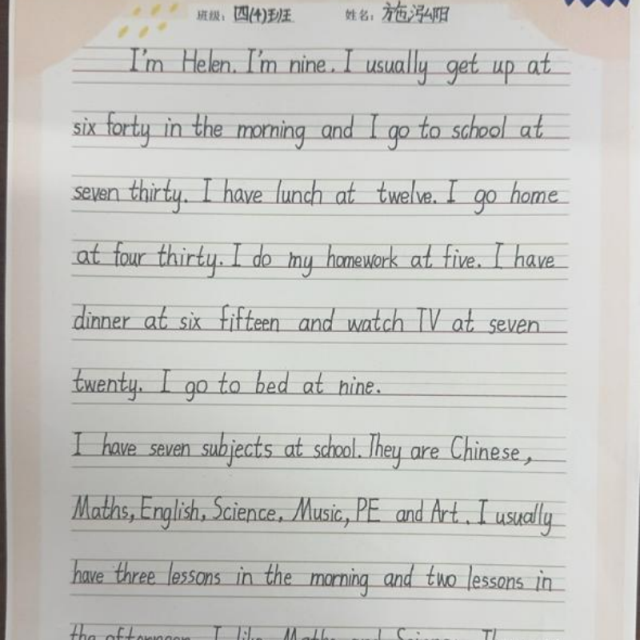 班级: 四(4)班 姓名: 施泓阳
I'm Helen. I'm nine. I usually get up at
six forty in the morning and I go to school at
seven thirty. I have lunch at twelve. I go home
at four thirty. I do my homework at five. I have
dinner at six fifteen and watch TV at seven
twenty. I go to bed at nine.
I have seven subjects at school. They are Chinese,
Maths, English, Science, Music, PE and Art. I usually
have three lessons in the morning and two lessons in
the afternoon. I like Maths and Science.